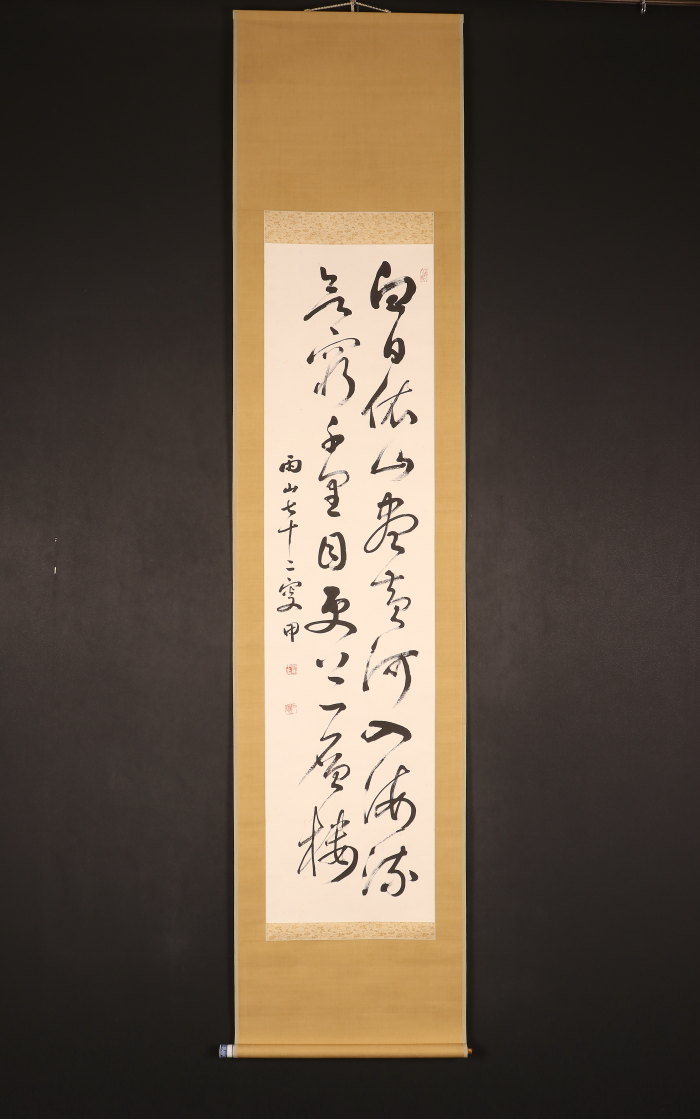 白日依山盡黄河入海流
欲窮千里目更上一層樓
雨山七十二叟甲